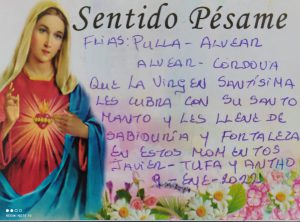 Sentido Pésame
FLIAS: PULLA - ALVEAR
ALVEAR - CÓRDOVA
QUE LA VIRGEN SANTÍSIMA
LES CUBRA CON SU SANTO
MANTO Y LES LLENE DE
SABIDURÍA Y FORTALEZA
EN ESTOS MOMENTOS
JAVIER - TUFA Y ANTHO
9 - ENE - 2022